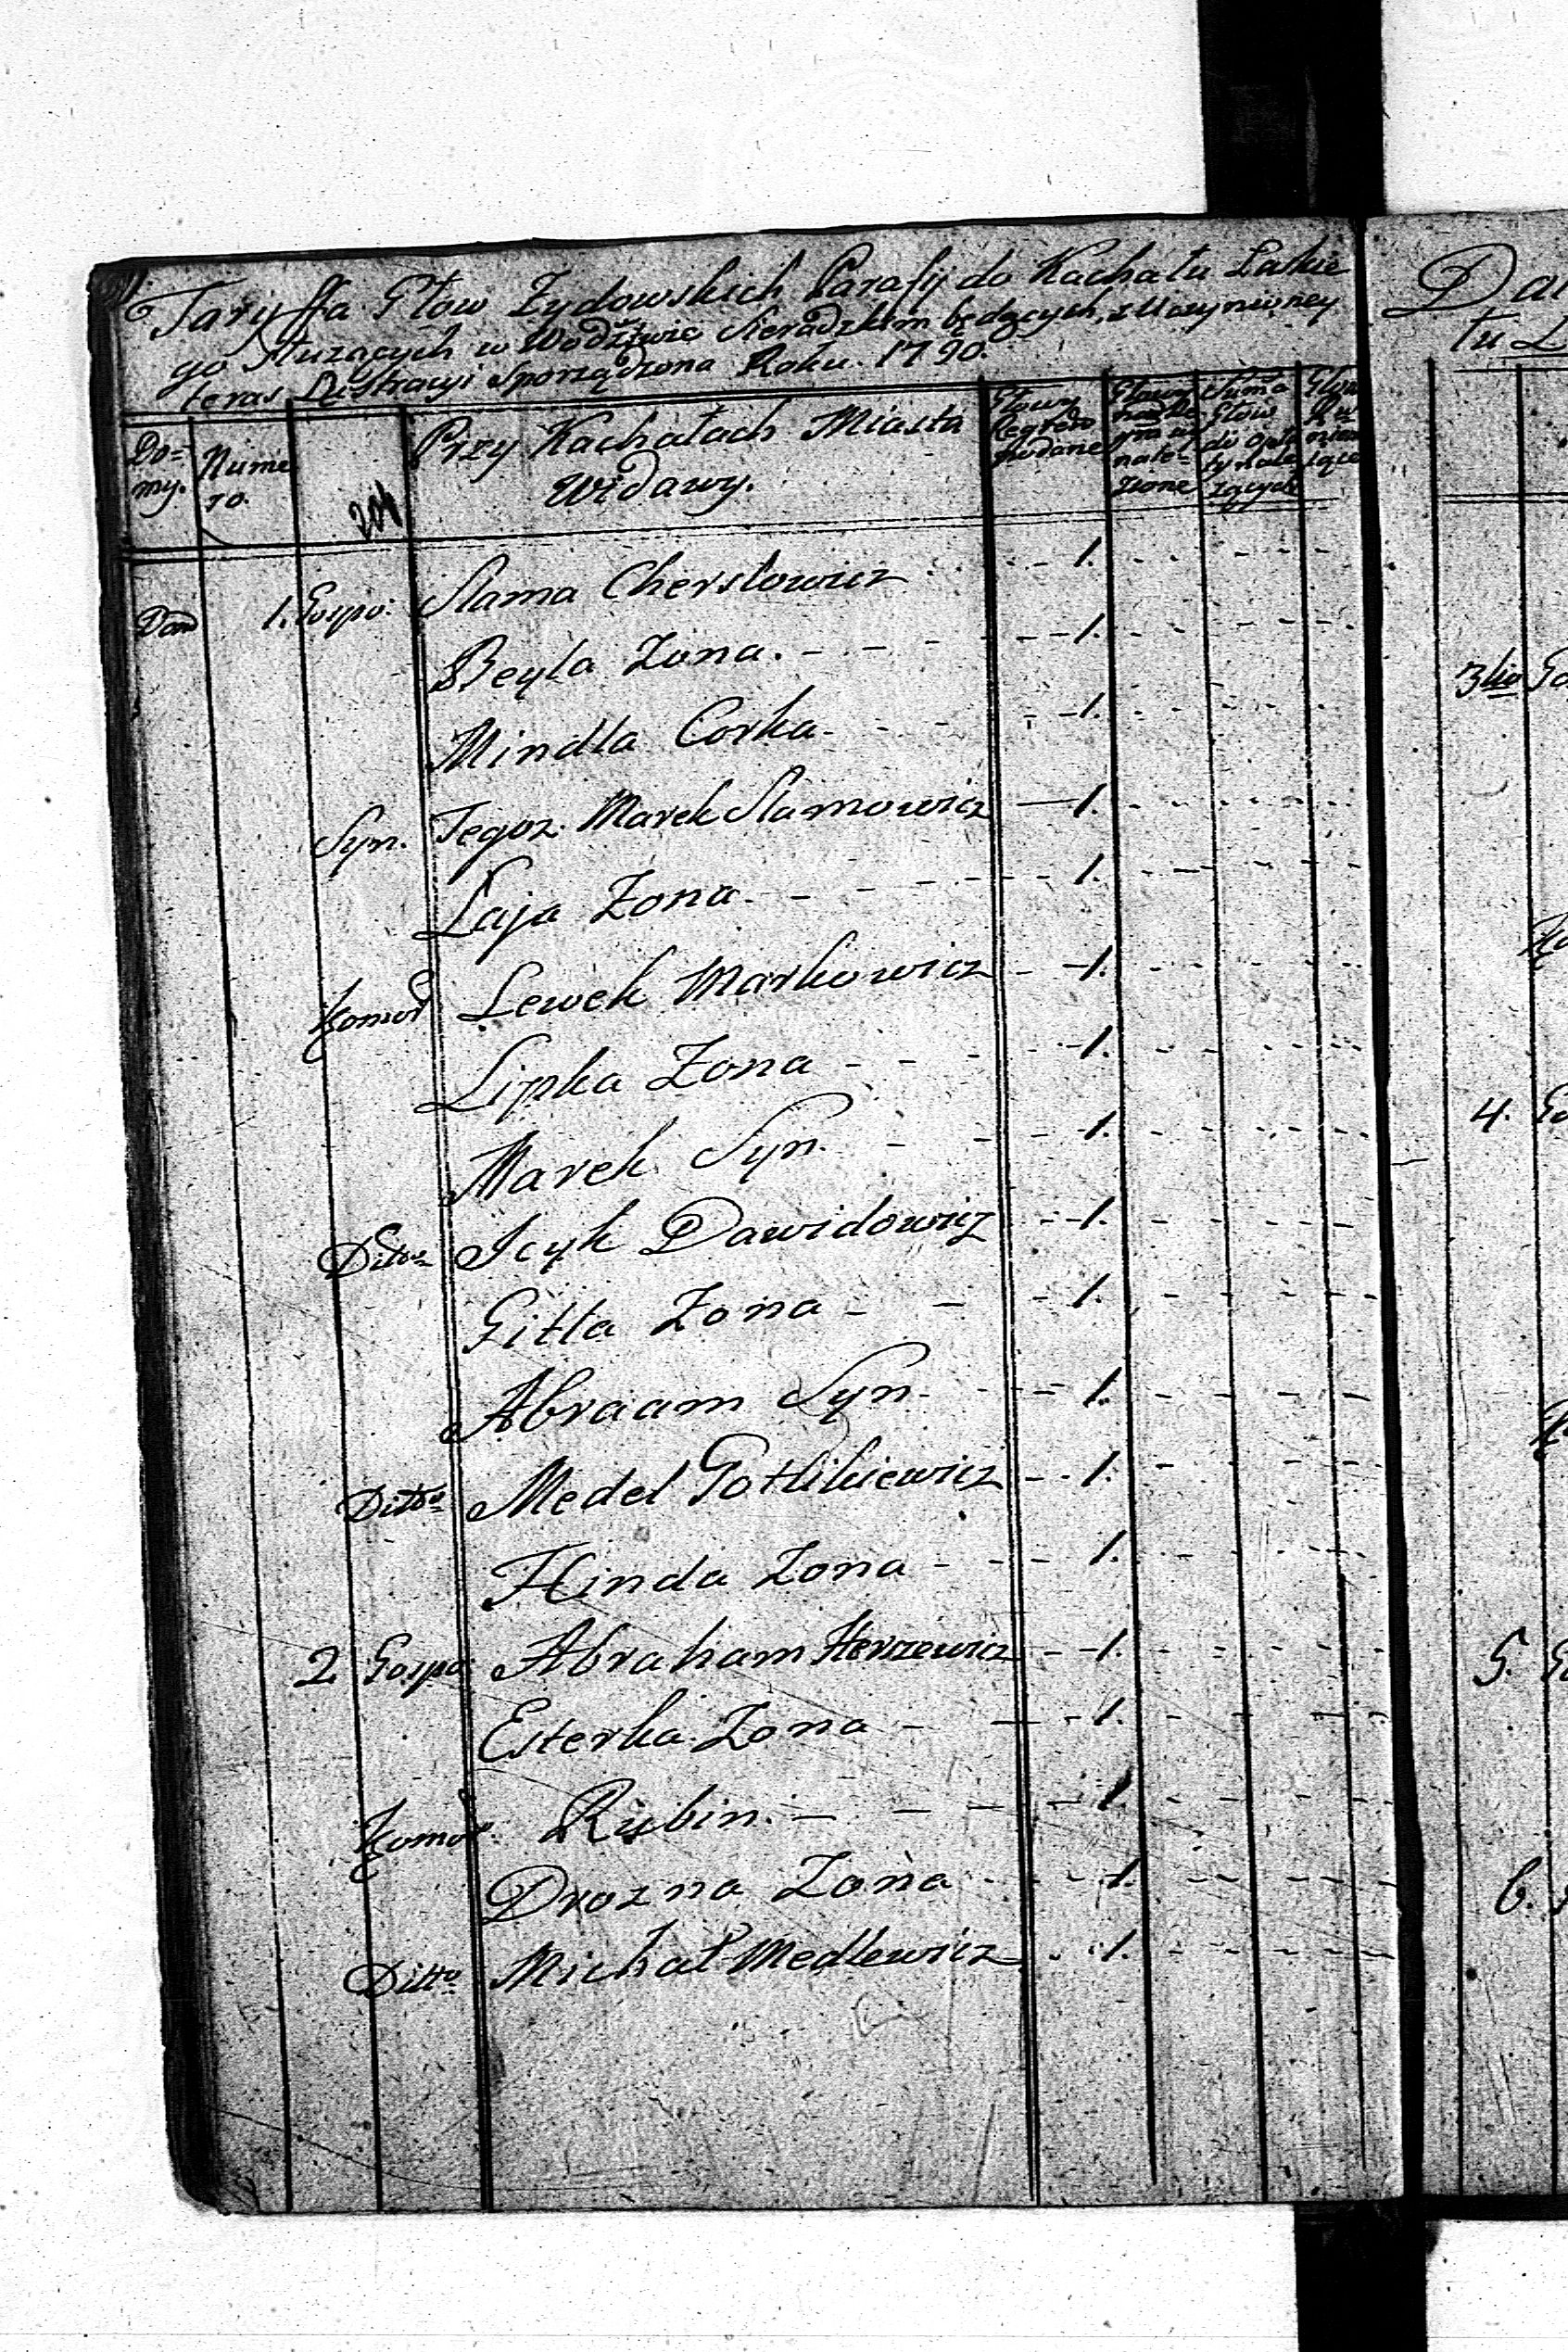 Taryffa Głow Zydowskich Parafij do Kachału Łaskie
go służących w Wodztwie Sieradzkim będących, z Uczynioney
teraz Lustracyi Sporządzona Roku. 1790.
Do=
my.
Nume
ro.
204
Przy Kachałach Miasta
Widawy.
Głowy
podane
Głowy
nale-
zione
Suma
Głow
do opła
ty nale
żących
Dom 1. Gospo: Slama Cherslowicz 1.
Beyla Zona. 1.
Mindla Corka. 1.
Syn. Tegoz. Marek Slamowicz 1.
Laja Zona. 1.
Komor Lewek Markowicz 1.
Lipka Zona 1.
Marek Syn. 1.
Ditto Icyk Dawidowicz 1.
Gitla Zona 1.
Abraam Syn. 1.
Ditto Medel Gotlikiewicz 1.
Hinda Zona 1.
2 Gospo: Abraham Herszewicz 1.
Esterka Zona 1.
Komor. Rubin. 1
Drozna Zona 1.
Ditto Michał Medlewicz 1.
Da
tu Ł
3tio Go
Ko
4. Go
5. G
6.